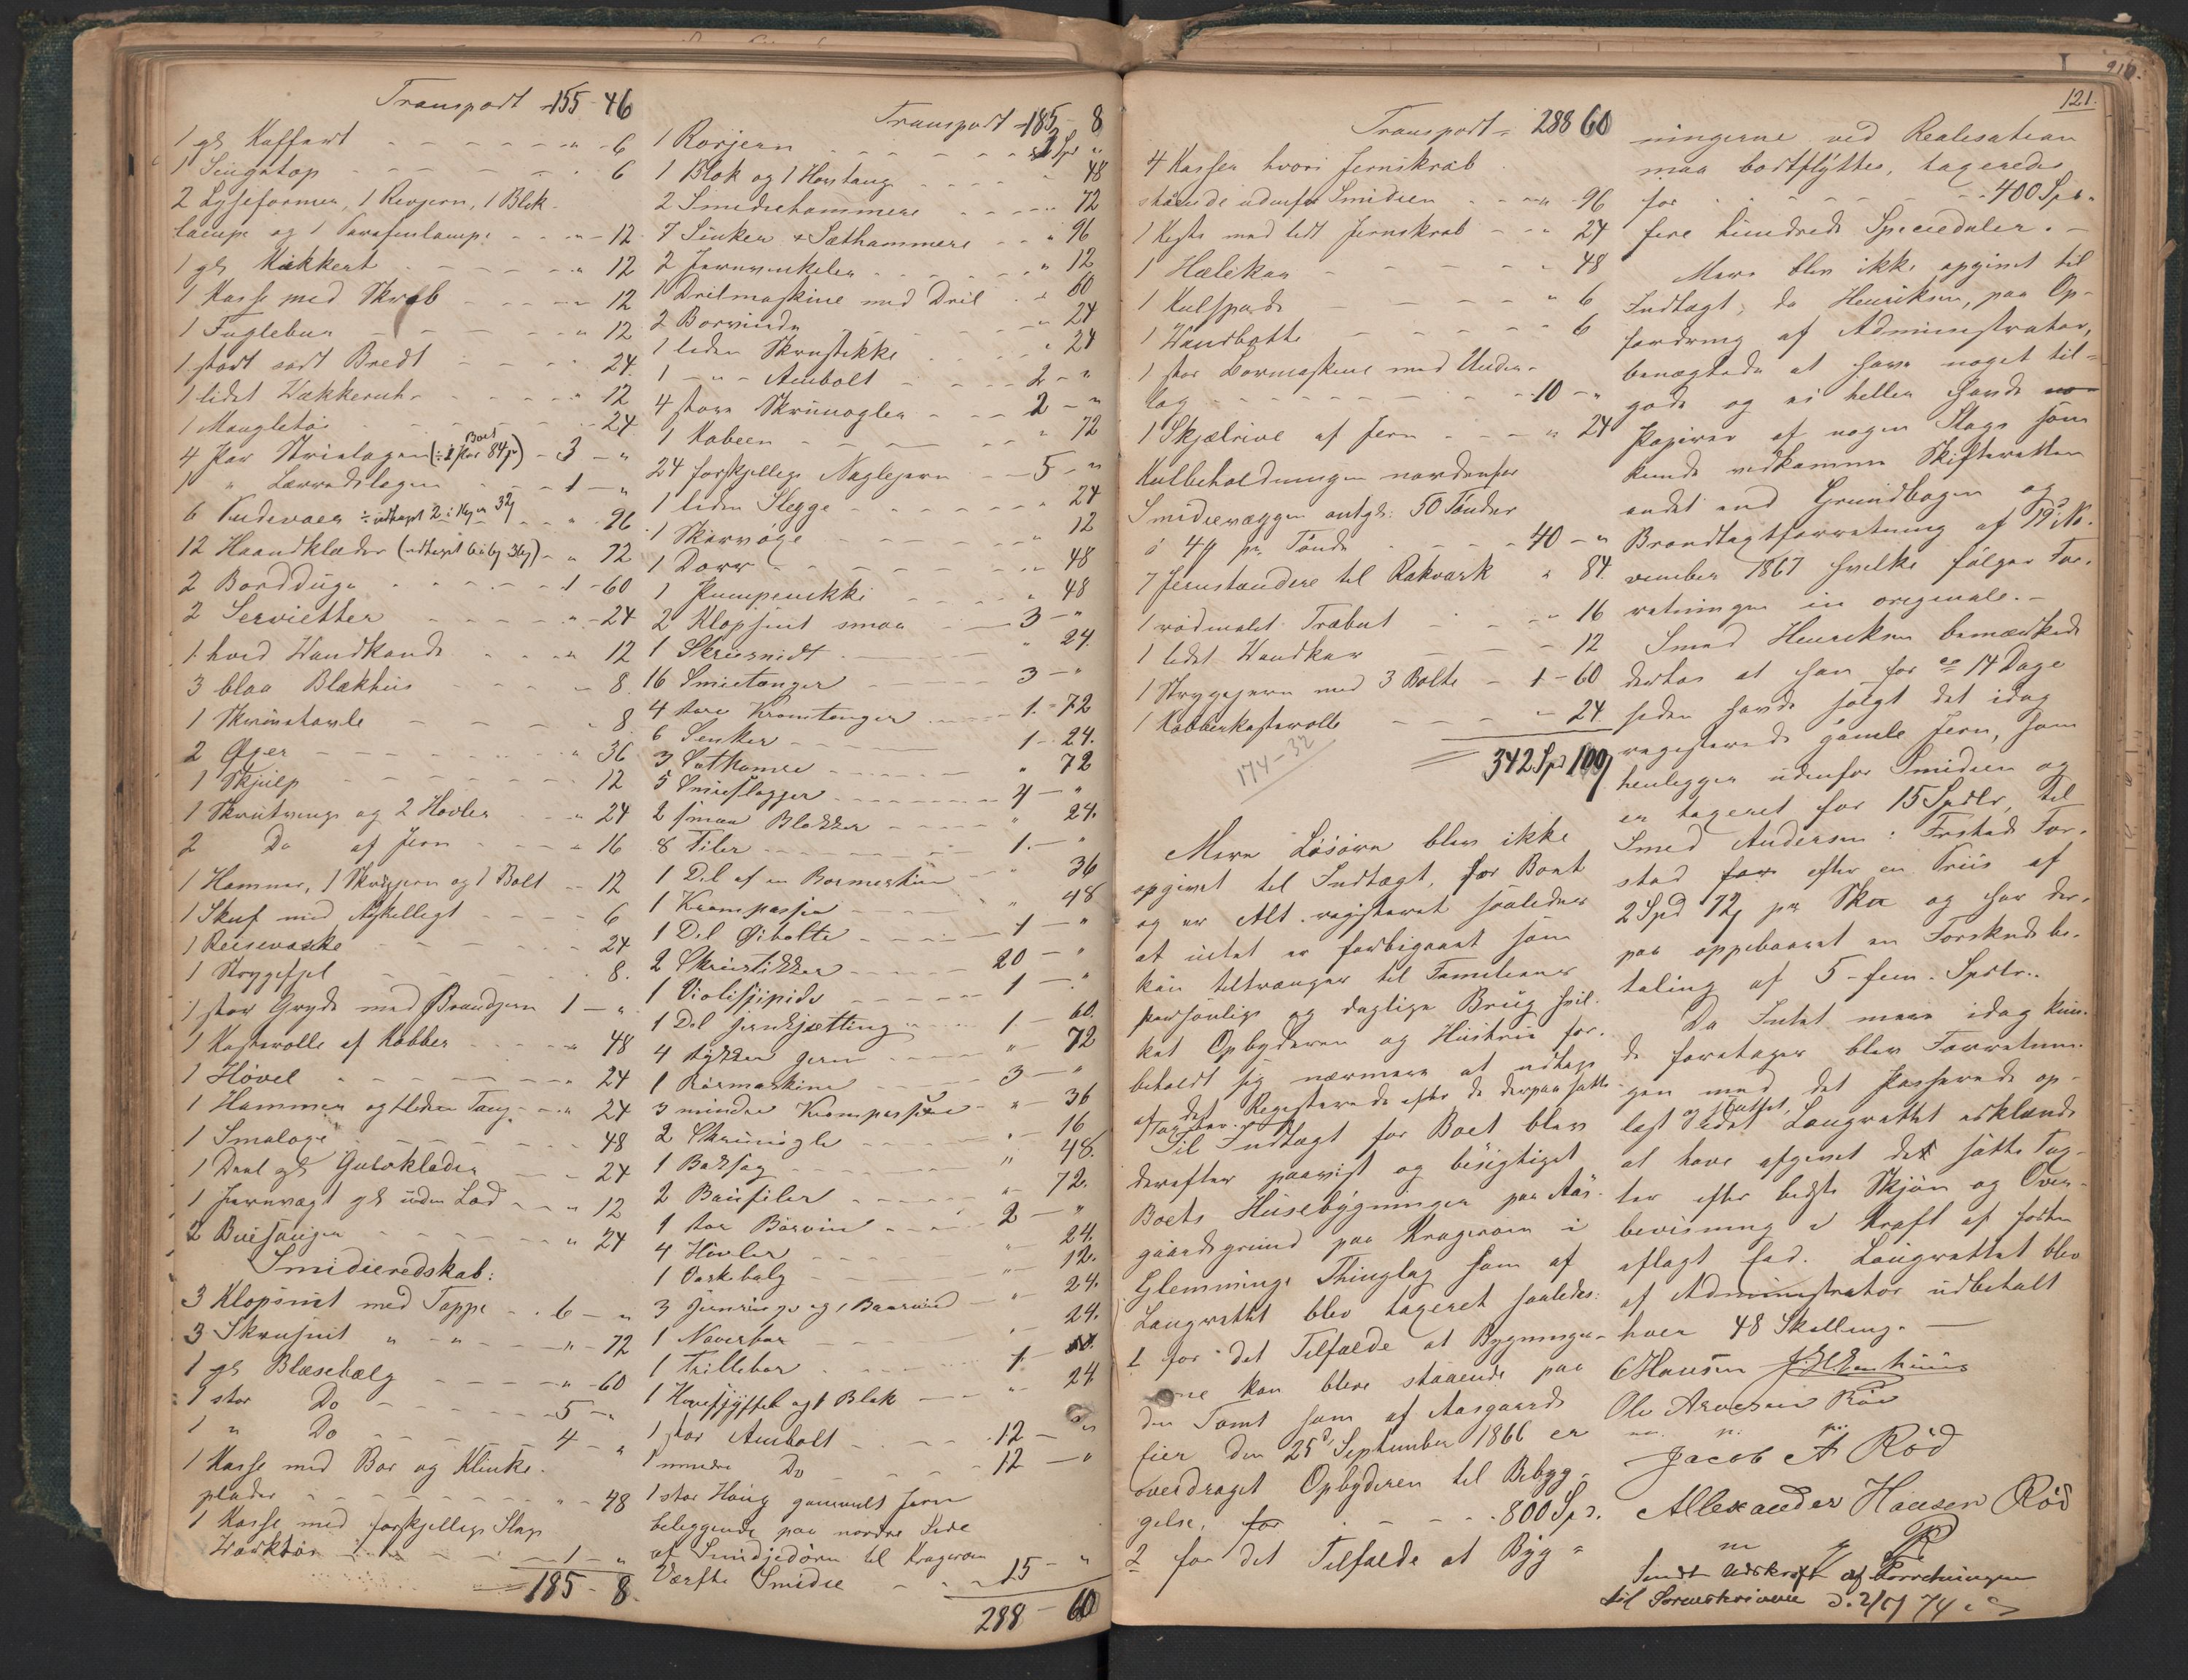 Transport 155-46
1 gl Kaffart - - - " - 6
1 Sengstop - - - " 6
2 Lyseformer, 1 Revjern, 1 Blik-
lampe og 1 Parafinlampe - - " - 12
1 gl Kikkert - - - " 12
1 Kasse med Skrab - - - " 12
1 Fuglebur - - - " 12
1 stort sort Bredt - - - 24
1 lidet Vækkeruhr - - - " 12
1 Mangletøi - - - " 24
4 Par Strielagen (÷ 1 Par Boet 84 β) - 3 - "
1 " Lærredslagen - - - 1 - "
6 Pudevaer ÷ udtaget 2 - - " 96
12 Haandklæder (udtaget 6) - " 72
2 Bordduge - - - 1 - 60
2 Servietter - - - " - 24
1 hvid Vandkande - - - " 12
3 blaa Blækhus - - - " 8.
1 Skrivetavle - - - " 8.
2 Øxer - - - " 36
1 Skjulp - - - 12
1 Skrutvinge og 2 Høvler - - " 24
2 Do af Jern - - - " 16
1 Hammer, 1 Skrujern og 1 Bolt - - 12
1 Skuf med Adskelligt - - - 6
1 Reisevaske - - - 24
1 Strygefjel - - - 8.
1 stor Gryde med Brandjern 1 - "
1 Kasterolle af Kobber - - - " 48
1 Høvel - - - " 24
1 Hammer og 1 liden Tang - - " 24
1 Smaloge - - - 48
1 Deel gl Gulvklæder - - - 24
1 Jernvægt gl uden Lod - - - " 12
2 Buesauger - - - " 24
Smidieredskab:
3 Klopsnit med Tappe - - 6 - "
3 Skrusnit " - " - - " - 72
1 gl Blæsebælg - - - " - 60
1 stor Do - - - 5 - "
1 " Do - - - 4 - "
1 Kasse med Bor og Klinke-
plader - - - " - 48
1 Kasse med forskjellige Slags
Værktøi - - - 1 - "
185 - 8.
Transport 185 - 8
1 Rorjern - - - 3 Spd "
1 Blok og 1 Hovtang - - - 48
2 Smediehammere - - - 72
7 Sinker & Sæthammere - - " 96
2 Jernvinkeler - - - " 12
1 Drilmaskine med Dril - - " 60
2 Borvinde - - - " 24
1 liden Skrustikke - - - " 24
1 - " - Ambolt - - - 2 - "
4 store Skrunøgler - - - 2 - "
1 Kobeen - - - " 72
24 forskjellige Naglejern - - 5 - "
1 liden Slegge - - - " 24
1 Skarvøge - - - " 12
1 Dorr - - - " 48
1 Pumpevikke - - - " 48
2 Klopsnit smaa - - 3 - "
1 Skrusnidt - - - " 24.
16 Smietanger - - - 3 - "
4 store Kromtanger - - - 1. - 72
6 Senker - - - 1 - 24.
3 Sæthamre - - - " 72
5 Smieslægger - - - 4 - "
2 smaa Blokker - - - " 24.
8 Filer - - - 1. - "
1 Del af en Bormaskin - - " 36
1 Krompasser - - - " 48
1 Del Øibolte - - - 1 - "
2 Skrustikker - - - 20 - "
1 Violispipide - - - 1 - "
1 Del Jernkjætting - - - 1 - 60.
4 stykker Jern - - - " 72
1 Bormaskine - - - 3 - "
3 mindre Krompassere - - " 36
2 Skrunøgle - - - " 16
1 Baksag - - - " 48.
2 Baufiler - - - " 72.
1 stor Borvin - - - 2 - "
4 Høvler - - - " 24.
1 Vaskebalg - - - " 12.
3 Jernringe og 1 Baarvind - - " 24.
1 Naverbor - - - " 24.
1 Trillebor - - - 1 -
1 Hovesfyffel og 1 Blok - - " 24
1 stor Ambolt - - - 12 - "
1 mindre Do - - - 12 - "
1 stor Houg gammelt Jern
beliggende paa nordre Side
af Smidjedøren til Kragerøen
Værfts Smidie - - - 15 - "
288 - 60
121.
Transport - 288 60
4 Kasser hvori Jernskrab
stående udenfor Smidien - - " 96
1 Kiste med lidt Jernskrab - - " 24
1 Hælekar - - - " 48
1 Kulspade - - - " 6
1 Vandbøtte - - - " 6
1 stor Bormaskine med Under-
lag - - - 10 - "
1 Skjælrive af Jern - - - " 24
Kulbeholdningen nordenfor
Smidievæggen antgl: 50 Tønder
á 4 β pr. Tønde - - - 40 - "
7 Jernstandere til Rakværk " 84.
1 rødmalet Træbut - - " 16
1 lidet Vandkar - - - 12
1 Strygejern med 3 Bolte - 1 - 60
1 Kobberkasserolle - - - " 24.
174-32
342 Spd 109 β
Mere Løsøre blev ikke
opgivet til Indtægt, for Boet
og er Alt registreret saaledes
at intet er forbigaaet som
kan tiltrænges til Familiens
personlige og daglige Brug hvil-
ket Opbyderen og Hustrue for-
beholdt sig nærmere at udtage
af det Registerede efter de derpaa satte
Taxter.
Til Indtægt for Boet blev
derefter paavist og besigtiget
Boets Husebygninger paa Aas-
gaards grund paa Kragerøen i
Glemminge Thinglag som af
Laugrettet blev taxeret saaledes:
1 for det Tilfælde at Bygninger-
ne kan blive staaende paa
den Tomt som af Aasgaards
Eier den 25d September 1866 er
overdraget Opbyderen til Bebyg-
gelse, for - - - 800 Spd.
2 for det Tilfælde at Byg-
ningerne ved Realisation
maa bortflyttes, taxeredes
for - - - 400 Spd.
fire hundrede Speciedaler. -
Mere blev ikke opgivet til
Indtægt, da Henriksen, paa Op-
fordring af Administrator,
benægtede at have noget til-
gode og ei heller havde
Papirer af nogen Slags som
kunde vedkomme Skifteretten
andet end Grundbogen og
Brandtaxtforretning af 19d No-
vember 1867 hvilke følger For-
retningen in originale. -
Smed Henriksen bemærkede
derhos at han for ca 14 Dage
siden havde solgt det idag
registrerede gamle Jern, som
henligger udenfor Smidien og
er taxeret for 15 Spdlr, til
Smed Andersen i Frstad For-
stad for efter en Priis af
2 Spd 72 β pr Sk℔ og har der-
paa oppebaaret en Forskudsbe-
taling af 5 - fem - Spdlr..
Da Intet mere idag kun-
de foretages blev Forretnin-
gen med det Passerede op-
læst og sluttet, idet Laugrettet erklærede
at have afgivet det satte Tax-
ter efter bedste Skjøn og Over-
bevisning i Kraft af forhen
aflagt Eed. Laugrettet blev
af Administrator udbetalt
hver 48 Skilling. -
CHansen
Ole Arvesen Röd
m. p. p.
Jacob A Röd
Allexander Hansen Röd
m p P
Sendt Udskrift af Forretningen
til Sorenskriveren d. 2/9 74